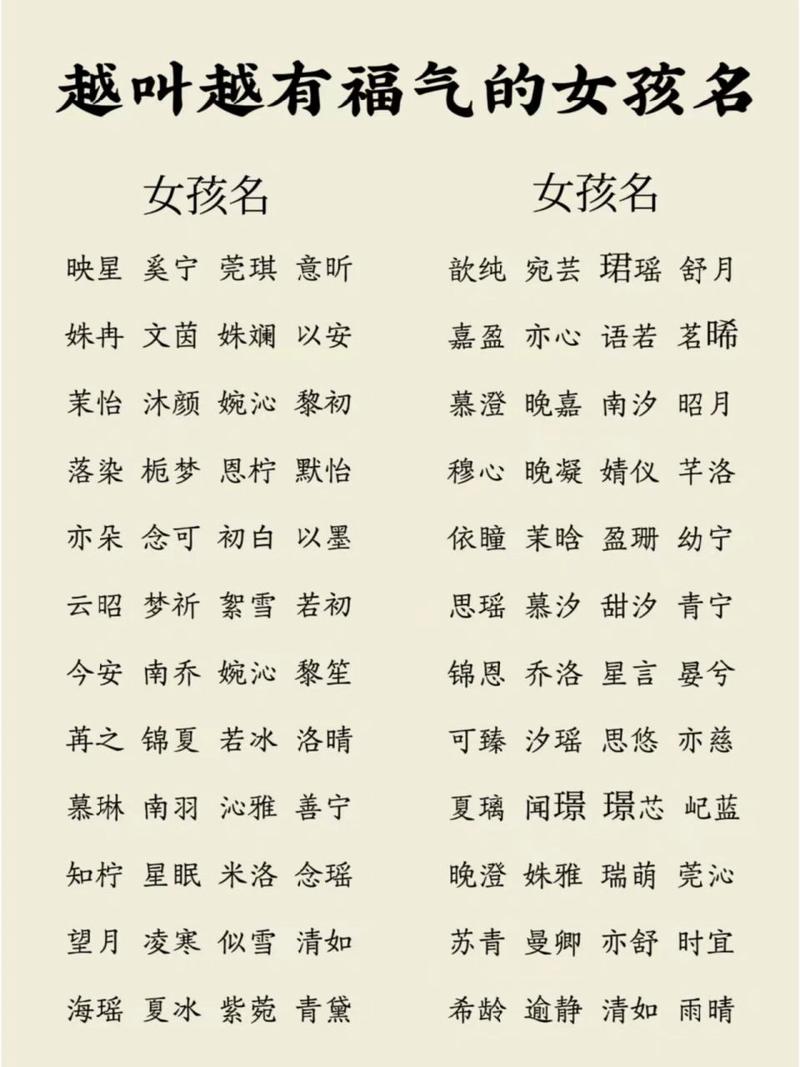 越叫越有福气的女孩名
女孩名
映星 奚宁 莞琪 意昕
姝冉 文茵 姝斓 以安
茉怡 沐颜 婉沁 黎初
落染 栀梦 恩柠 默怡
亦朵 念可 初白 以墨
云昭 梦祈 絮雪 若初
今安 南乔 婉沁 黎笙
苒之 锦夏 若冰 洛晴
慕琳 南羽 沁雅 善宁
知柠 星眠 米洛 念瑶
望月 凌寒 似雪 清如
海瑶 夏冰 紫菀 青黛
女孩名
歆纯 宛芸 珺瑶 舒月
嘉盈 亦心 语若 茗晞
慕澄 晚嘉 南汐 昭月
穆心 晚凝 婧仪 芊洛
依瞳 茉晗 盈珊 幼宁
思瑶 慕汐 甜汐 青宁
锦恩 乔洛 星言 晏兮
可臻 汐瑶 思悠 亦慈
夏璃 闻璟 璟芯 屺蓝
晚澄 姝雅 瑞萌 莞沁
苏青 曼卿 亦舒 时宜
希龄 逾静 清如 雨晴